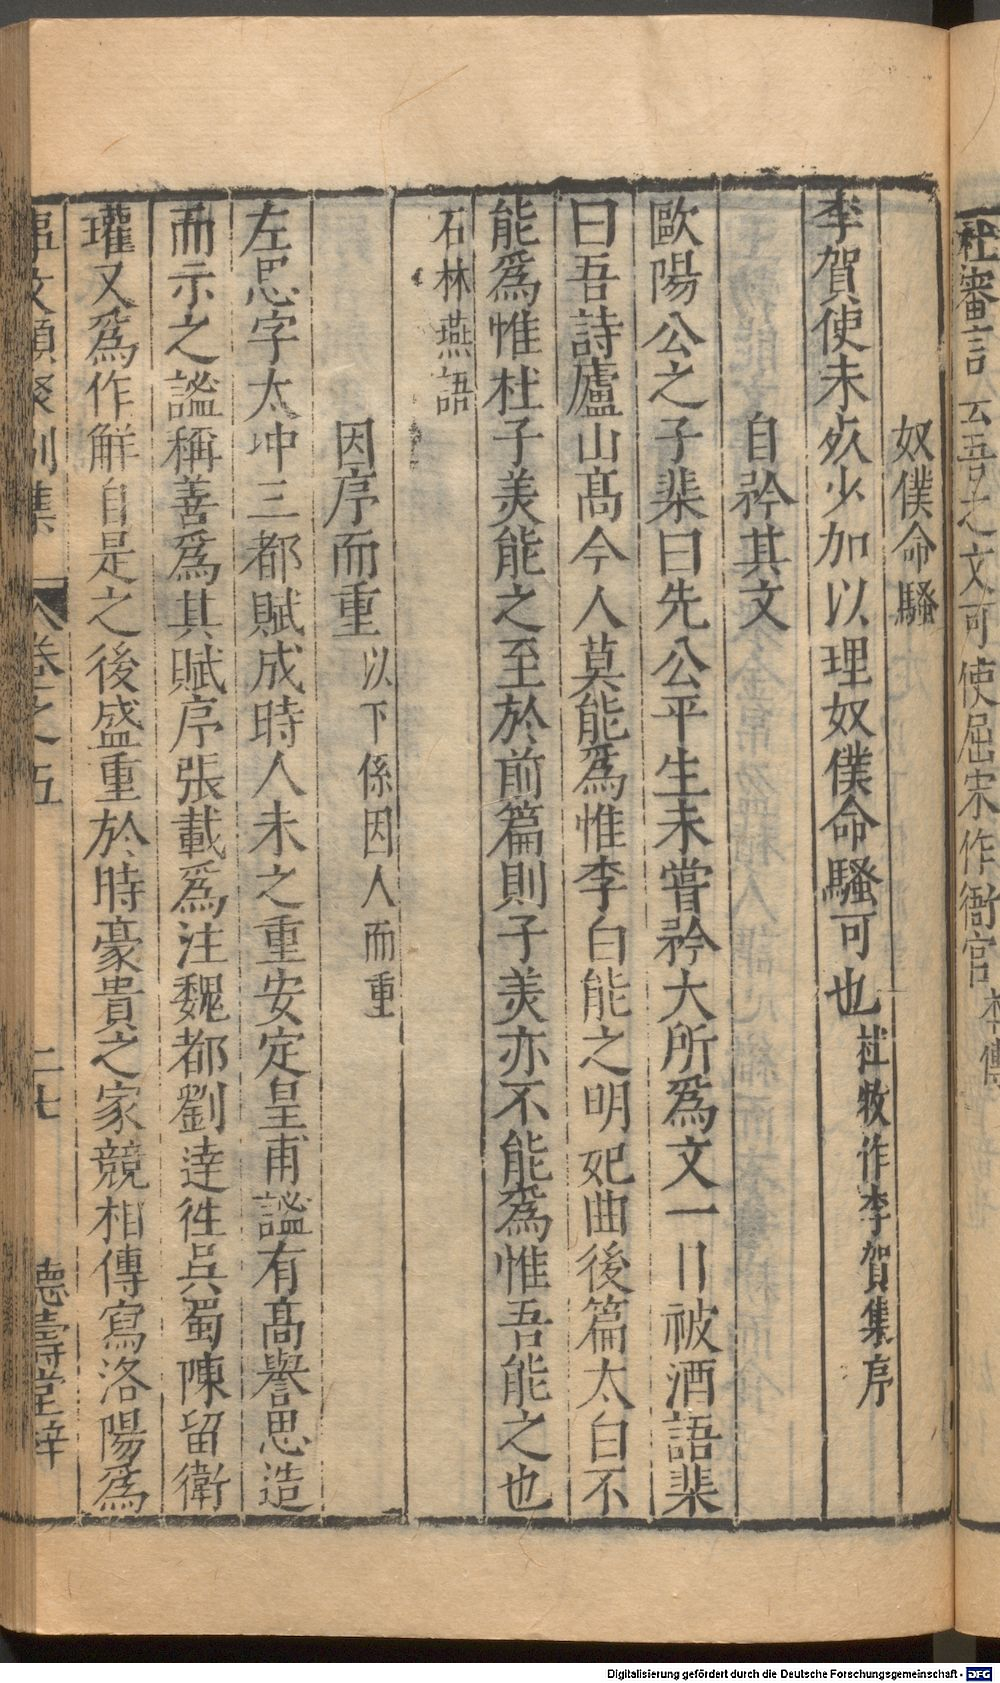 杜審言云吾之文可使屈宋作衙官本傳
奴僕命騷
李賀使未死少加以理奴僕命騷可也杜牧作李賀集序
自矜其文
歐陽公之子棐曰先公平生未嘗矜大所爲文一日被酒語棐
曰吾詩廬山高今人莫能爲惟李白能之明妃曲後篇太白不
能爲惟杜子羙能之至於前篇則子羙亦不能爲惟吾能之也
石林燕語
因序而重以下係因人而重
左思字太冲三都賦成時人未之重安定皇甫謐有高譽思造
而示之謐稱善爲其賦序張載爲注魏都劉逵注吳蜀陳留衛
瓘又爲作解自是之後盛重於時豪貴之家競相傳寫洛陽爲
事文類聚別集 卷之五 二七 德壽堂梓
Digitalisierung gefördert durch die Deutsche Forschungsgemeinschaft - DFG